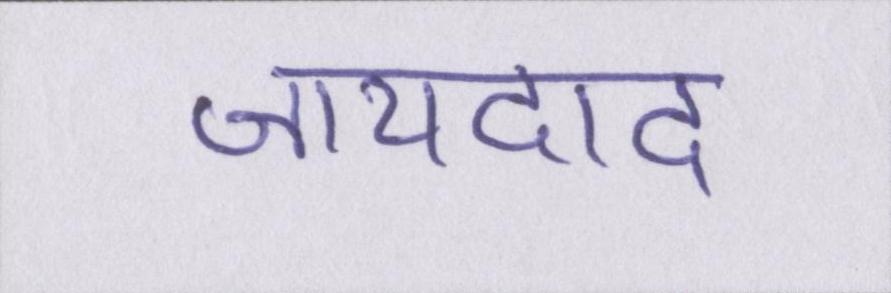 जायदाद